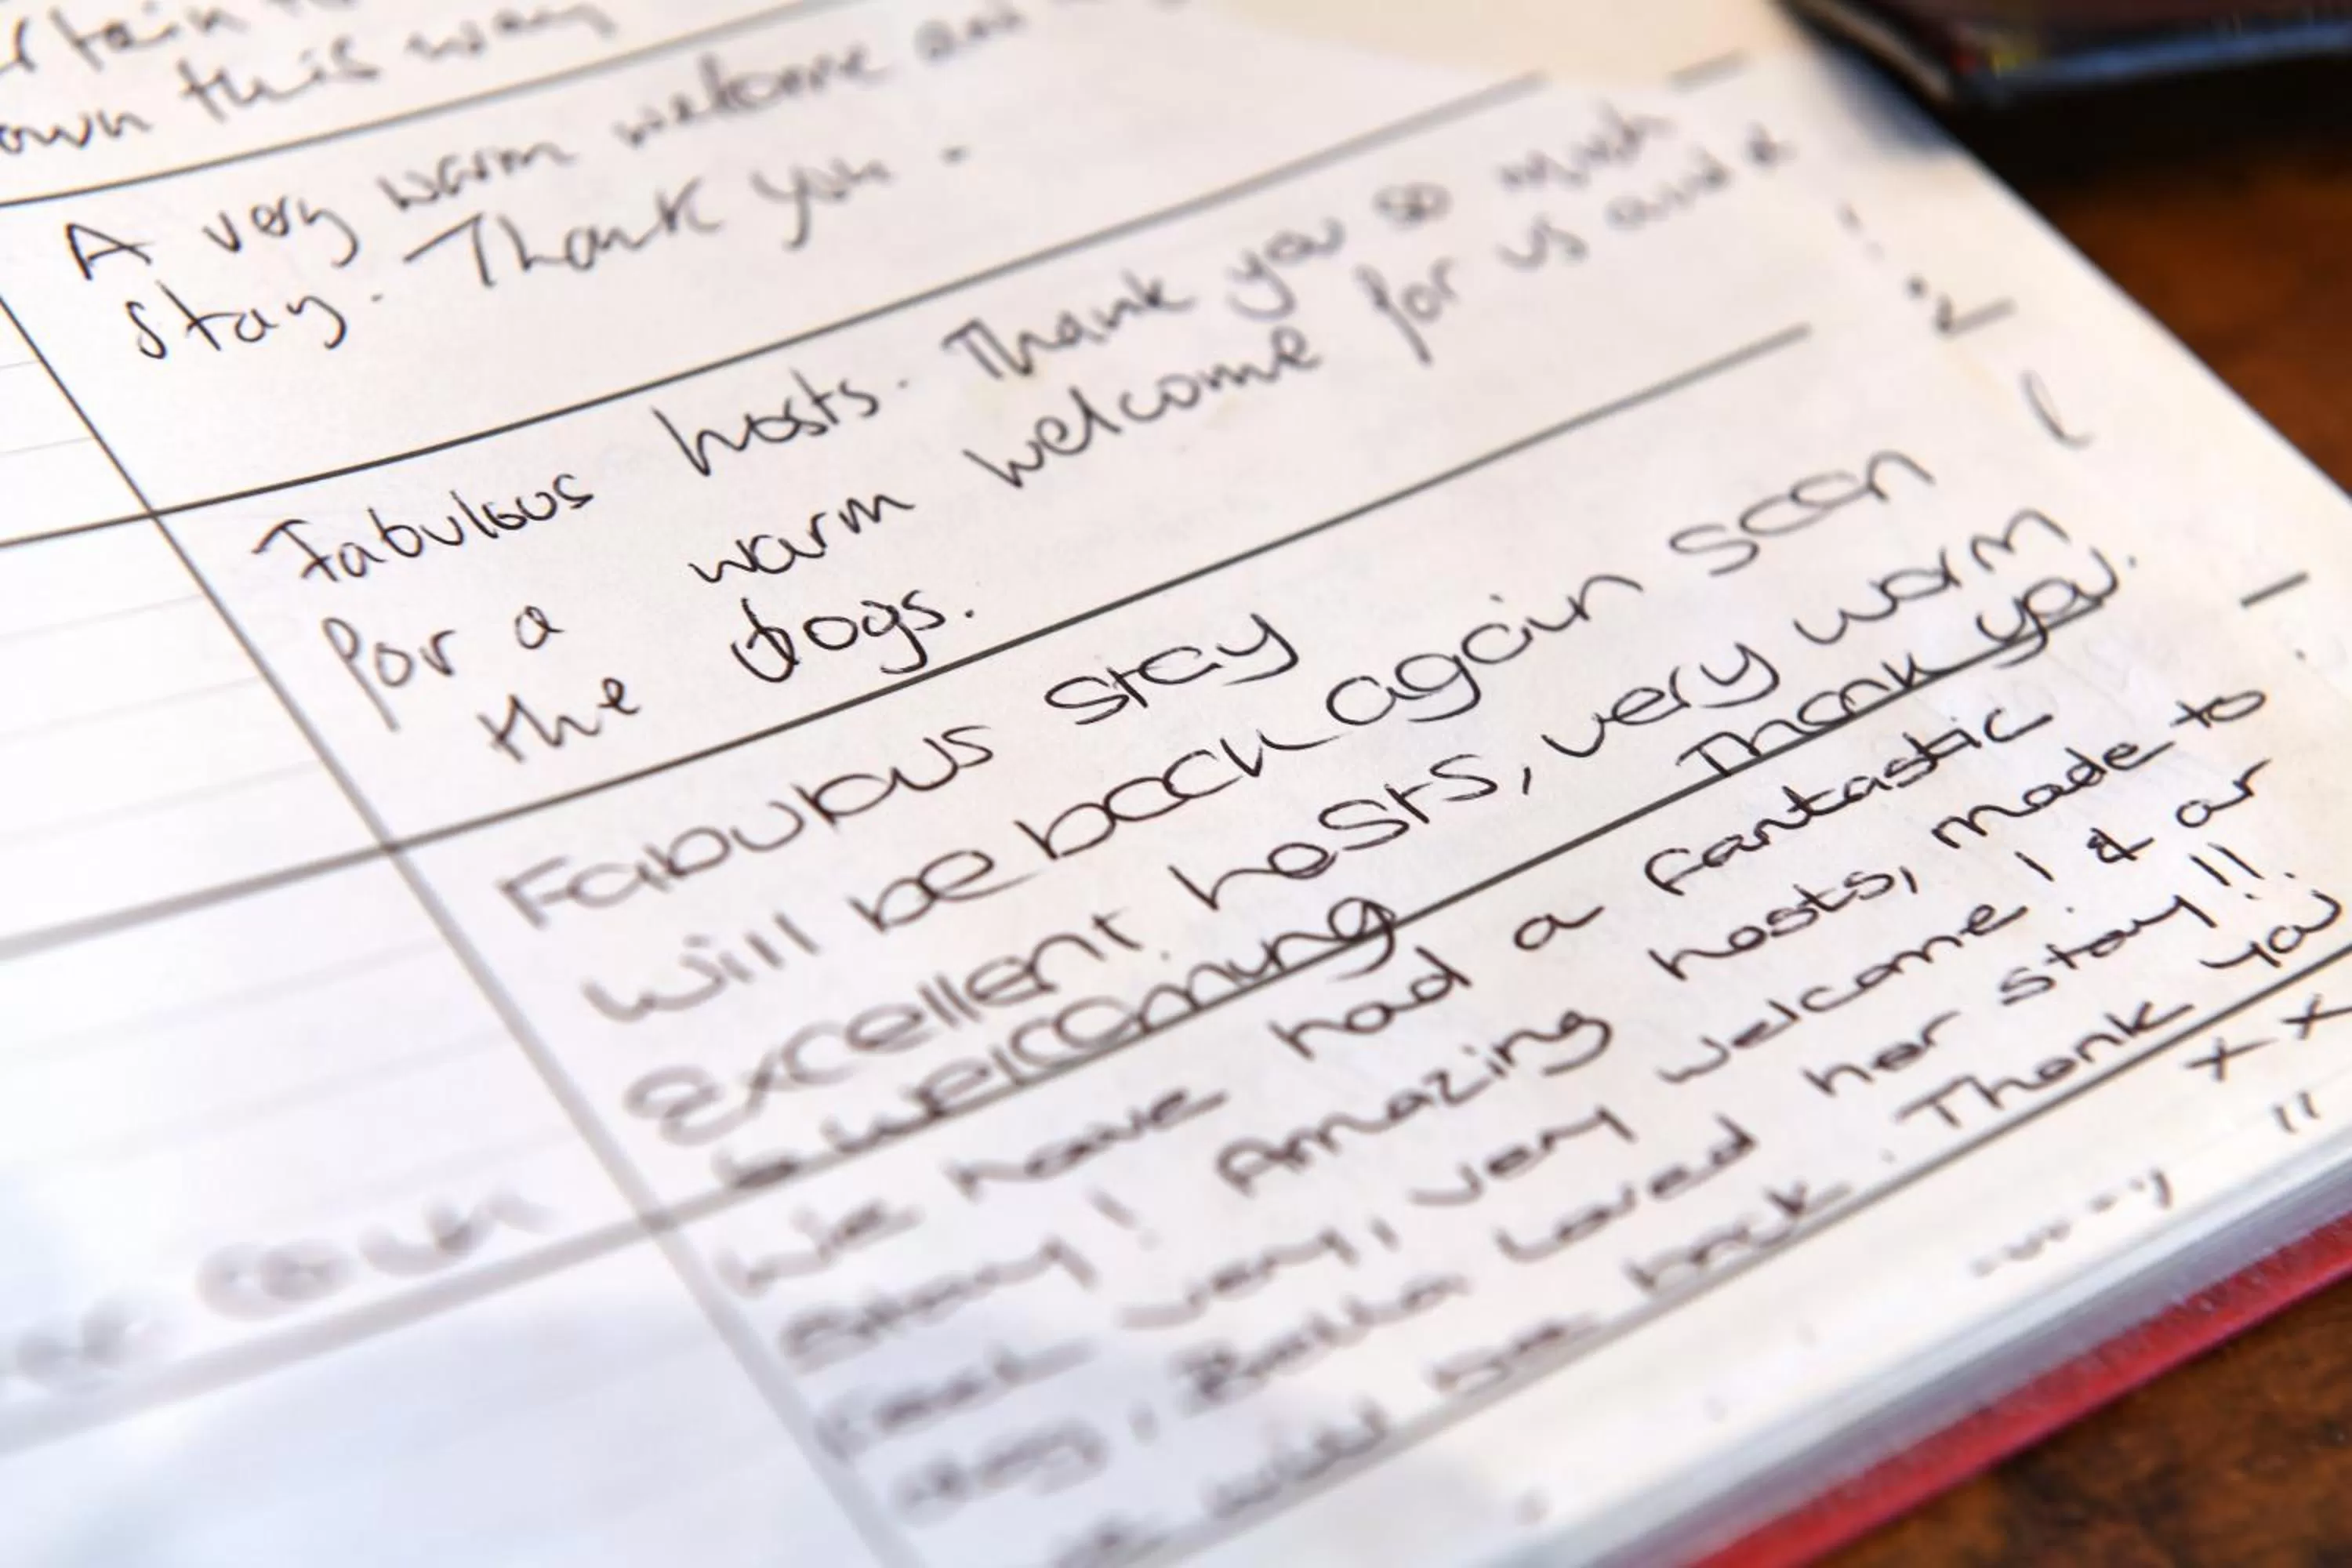 own this way
A very warm welcome and
stay. Thank you.
Fabulous hosts. Thank you so much
for a warm welcome for us and
the dogs.
Fabulous stay
will be back again soon
Excellent hosts, very warm
& welcoming Thank you.
We have had a fantastic
Stay! Amazing hosts, made to
feel very, very welcome! & our
dog, Bella loved her stay!!
We will be back. Thank you
xx